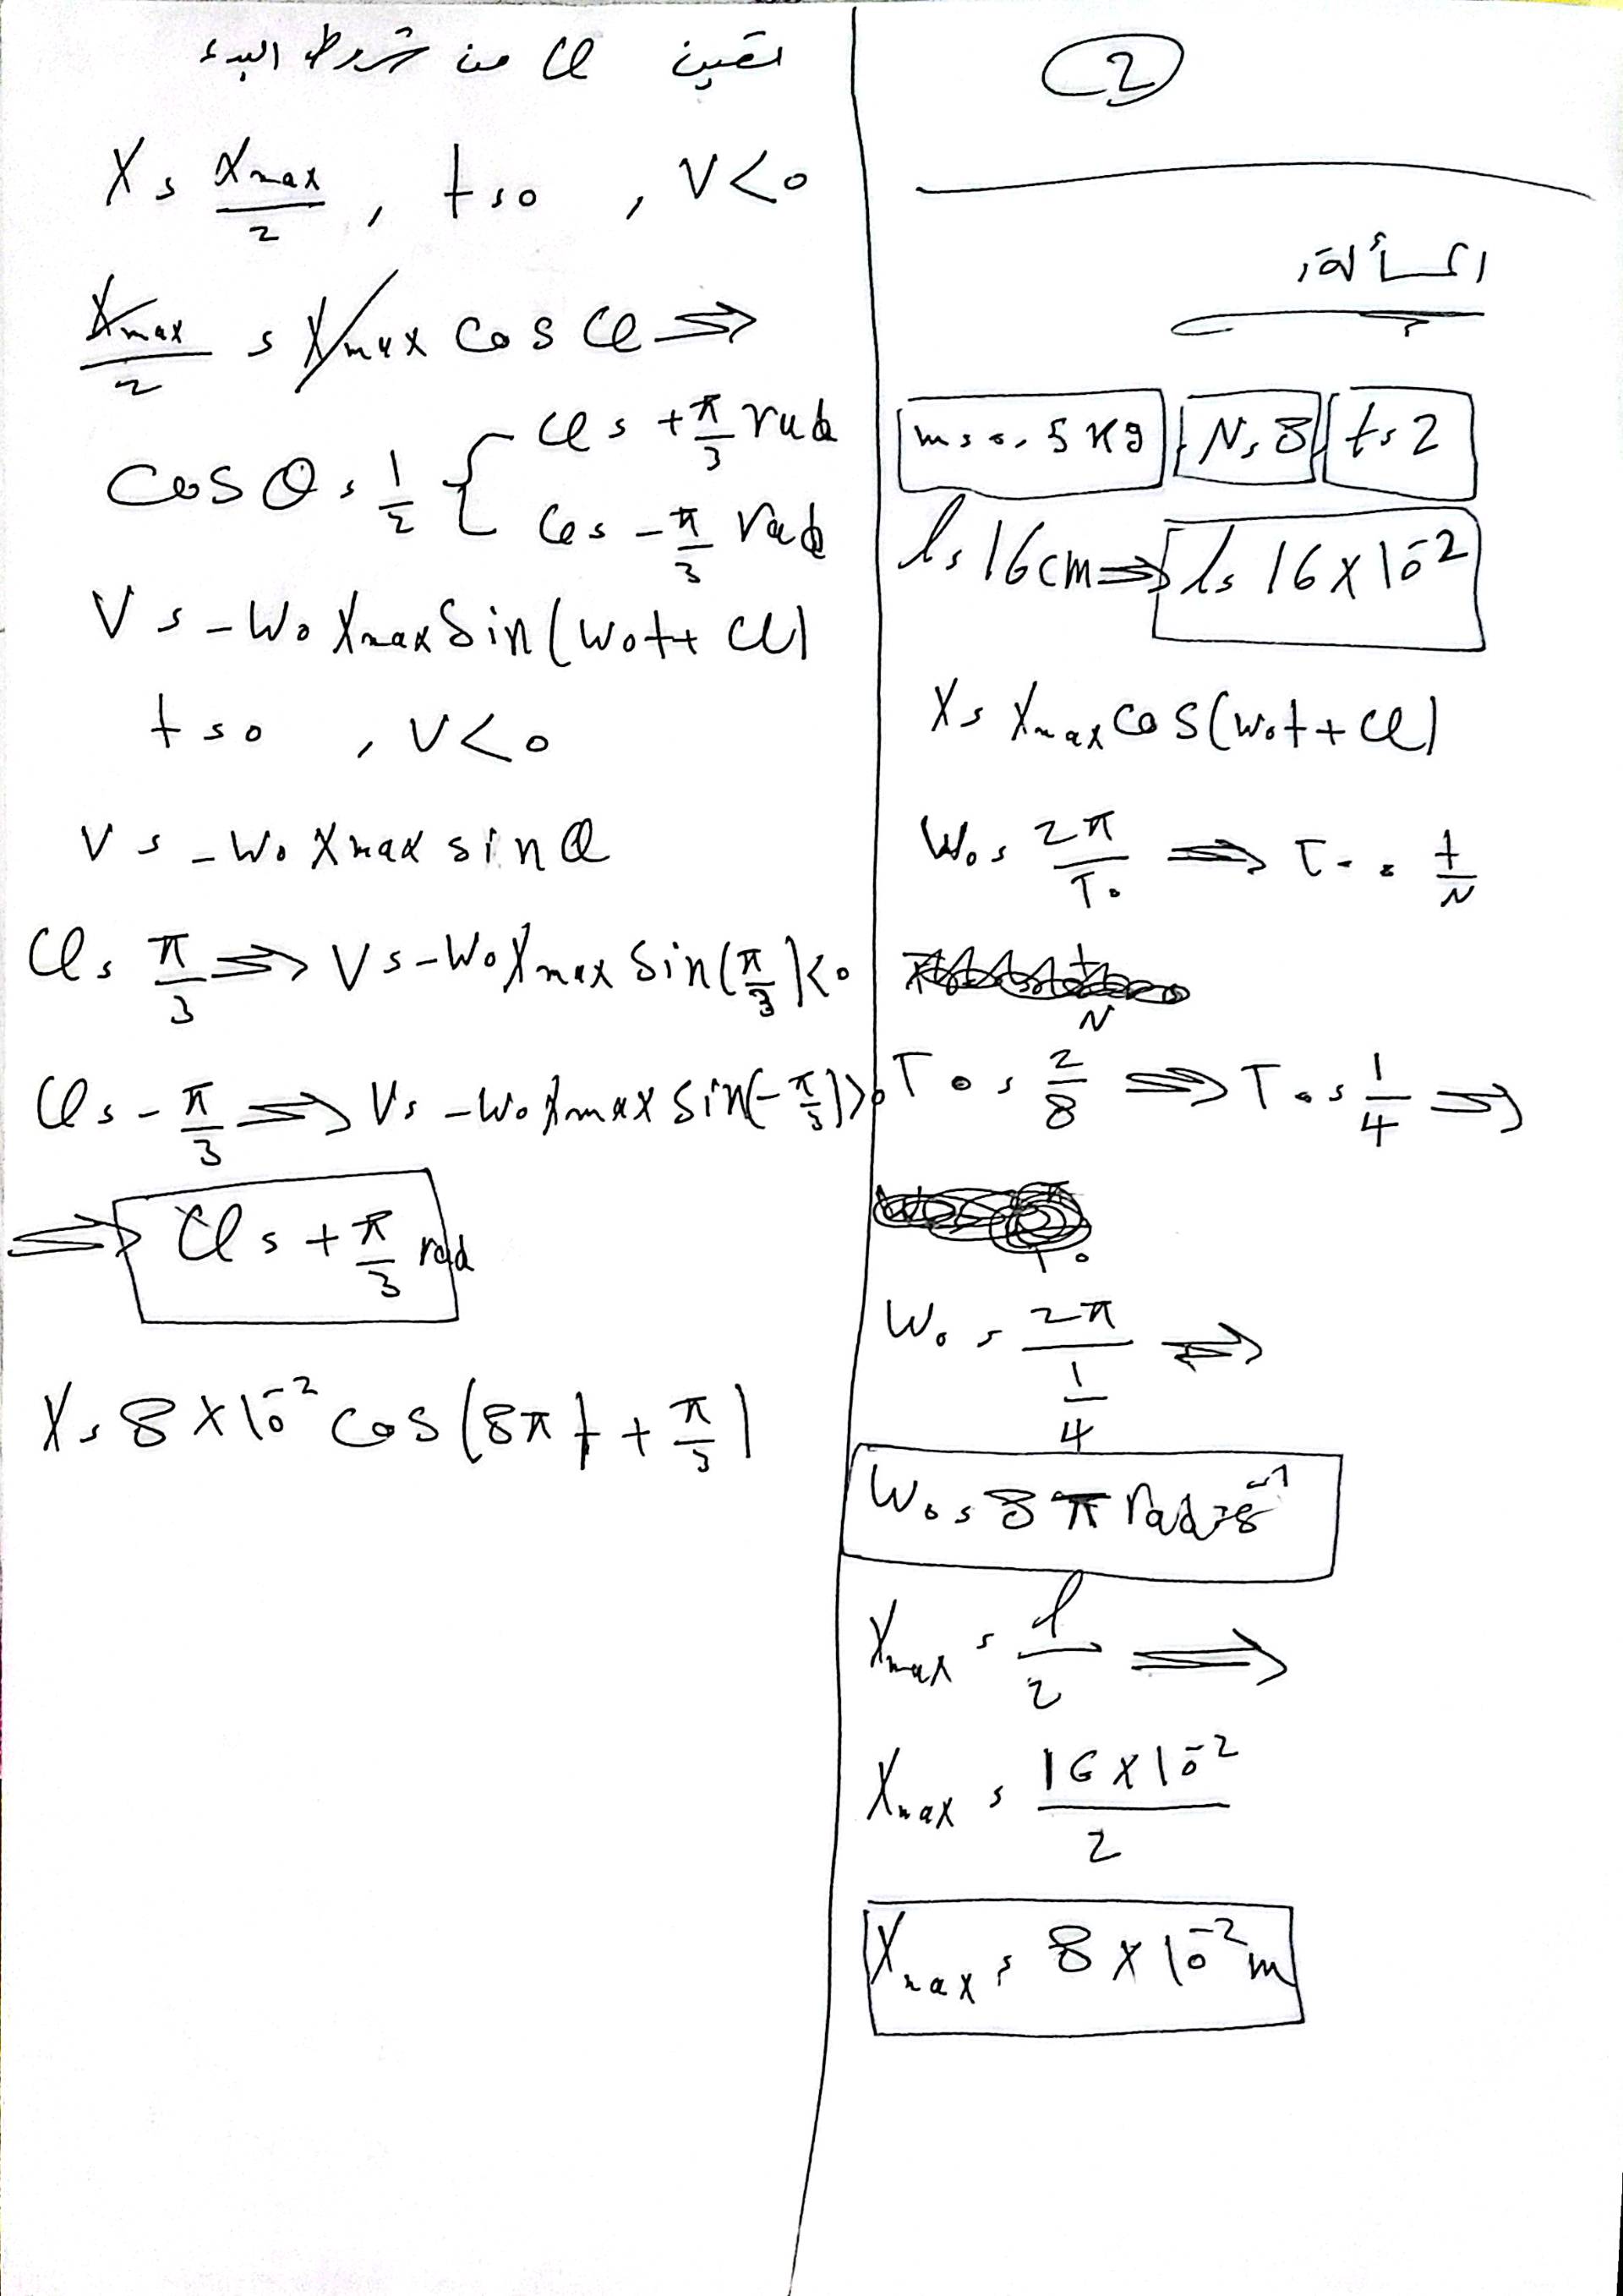 2
المسألة:
m = 0.5 Kg , N = 8 , t = 2
l = 16 cm ⇒ l = 16 × 10⁻²
X = Xmax cos(ω₀t + φ)
ω₀ = 2π/T₀ ⇒ T₀ = t/N
T₀ = 2/8 ⇒ T₀ = 1/4 ⇒
ω₀ = 2π/(1/4) ⇒
ω₀ = 8π rad·s⁻¹
Xmax = l/2 ⇒
Xmax = 16 × 10⁻²/2
Xmax = 8 × 10⁻² m
تعين φ من شروط البدء
X = Xmax/2 , t = 0 , V < 0
Xmax/2 = Xmax cos φ ⇒
cos θ = 1/2 { φ = +π/3 rad
φ = -π/3 rad
V = -ω₀ Xmax sin(ω₀t + φ)
t = 0 , V < 0
V = -ω₀ Xmax sin φ
φ = π/3 ⇒ V = -ω₀ Xmax sin(π/3) < 0
φ = -π/3 ⇒ V = -ω₀ Xmax sin(-π/3) > 0
⇒ φ = +π/3 rad
X = 8 × 10⁻² cos(8πt + π/3)